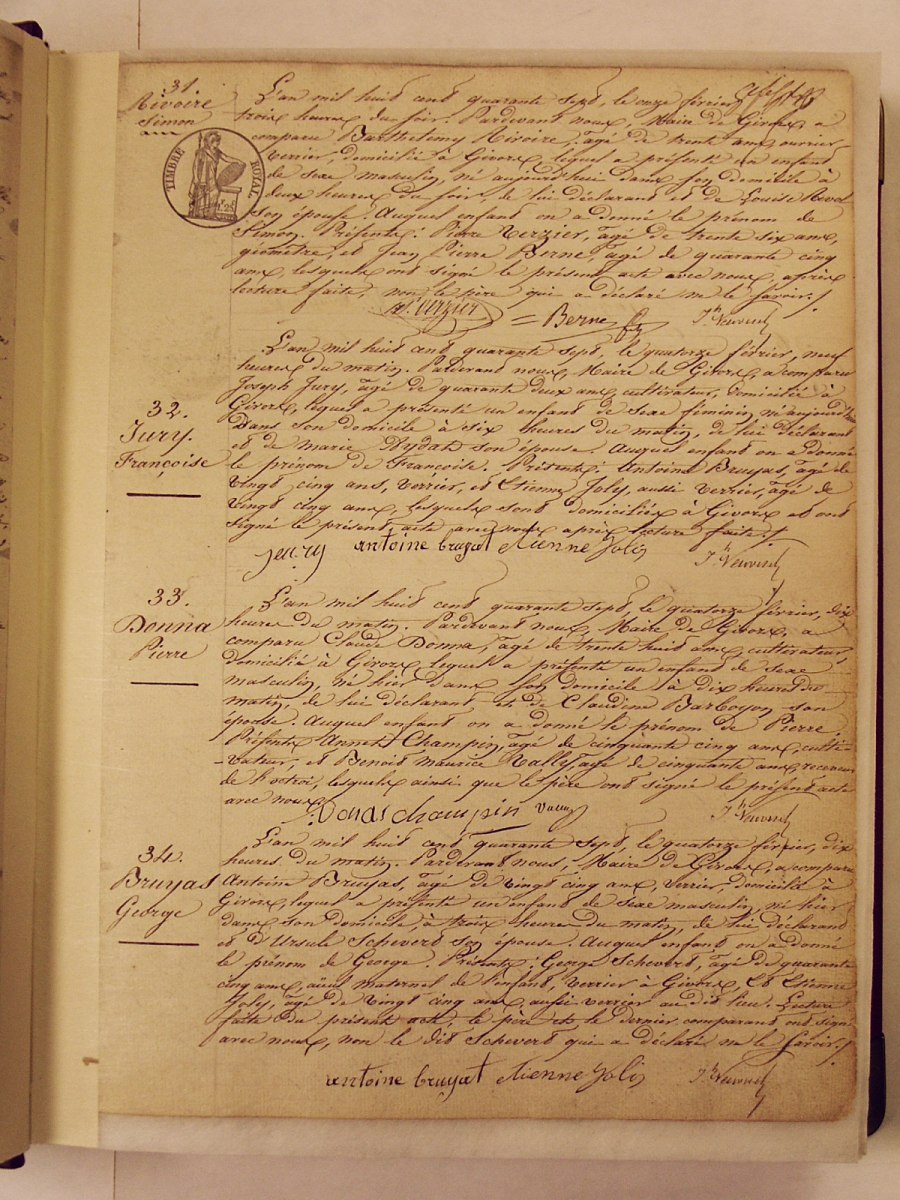 31.
Rivoire
Simon
TIMBRE ROYAL
L'an mil huit cent quarante sept, le onze février
trois heures du soir. Pardevant nous, Maire de Givors, a
comparu Barthelemy Rivoire, agé de trente ans ouvrier
verrier, domicilié à Givors, lequel a présenté un enfant
de sexe masculin, né aujourd'hui dans son domicile à
deux heures du soir, de lui déclarant et de Louise
son épouse. Auquel enfant on a donné le prénom de
Simon. Présents: Pierre Verzier, agé de trente six ans,
géomètre, et Jean Pierre Berne, agé de quarante cinq
ans, lesquels ont signé le présent acte avec nous, après
lecture faite, non le père qui a déclaré ne le savoir./
Verzier Berne
32.
Jury.
Françoise
L'an mil huit cent quarante sept, le quatorze février, neuf
heures du matin. Pardevant nous, Maire de Givors, a comparu
Joseph Jury, agé de quarante deux ans, cultivateur, domicilié à
Givors, lequel a présenté un enfant de sexe féminin né aujourd'hui
dans son domicile à six heures du matin, de lui déclarant
et de marie son épouse. Auquel enfant on a donné
le prénom de Françoise. Présents: Antoine Bruyas, agé de
vingt cinq ans, verrier, et Etienne Joly, aussi verrier, agé de
vingt cinq ans, lesquels sont domiciliés à Givors et ont
signé le présent acte avec nous après lecture faite./
jeury antoine bruyat etienne Joli
33.
Donna
Pierre
L'an mil huit cent quarante sept, le quatorze février, dix
heures du matin. Pardevant nous, Maire de Givors, a
comparu Claude Donna, agé de trente huit ans, cultivateur,
domicilié à Givors, lequel a présenté un enfant de sexe
masculin, né hier dans son domicile à dix heures du
matin, de lui déclarant, et de Claudine Barboyon son
épouse. Auquel enfant on a donné le prénom de Pierre.
Présents Annet Champin, agé de cinquante cinq ans, culti-
-vateur, et Benoit maurice Vally, agé de cinquante ans, receveur
de l'octroi, lesquels ainsi que le père ont signé le présent acte
avec nous.
Donas champin
34.
Bruyas
George
L'an mil huit cent quarante sept, le quatorze février, dix
heures du matin. Pardevant nous, Maire de Givors, a comparu
Antoine Bruyas, agé de vingt cinq ans, verrier, domicilié à
Givors, lequel a présenté un enfant de sexe masculin, né hier
dans son domicile, à trois heures du matin, de lui déclarant
et d'Ursule Schevert son épouse. Auquel enfant on a donné
le prénom de George. Présents: George Schevert, agé de quarante
cinq ans, aïeul maternel de l'enfant, verrier à Givors, et Etienne
Joly, agé de vingt cinq ans, aussi verrier au dit lieu. Lecture
faite du présent acte, le père et le dernier comparant ont signé
avec nous, non le dit Schevert qui a déclaré ne le savoir./
antoine bruyat etienne Joli